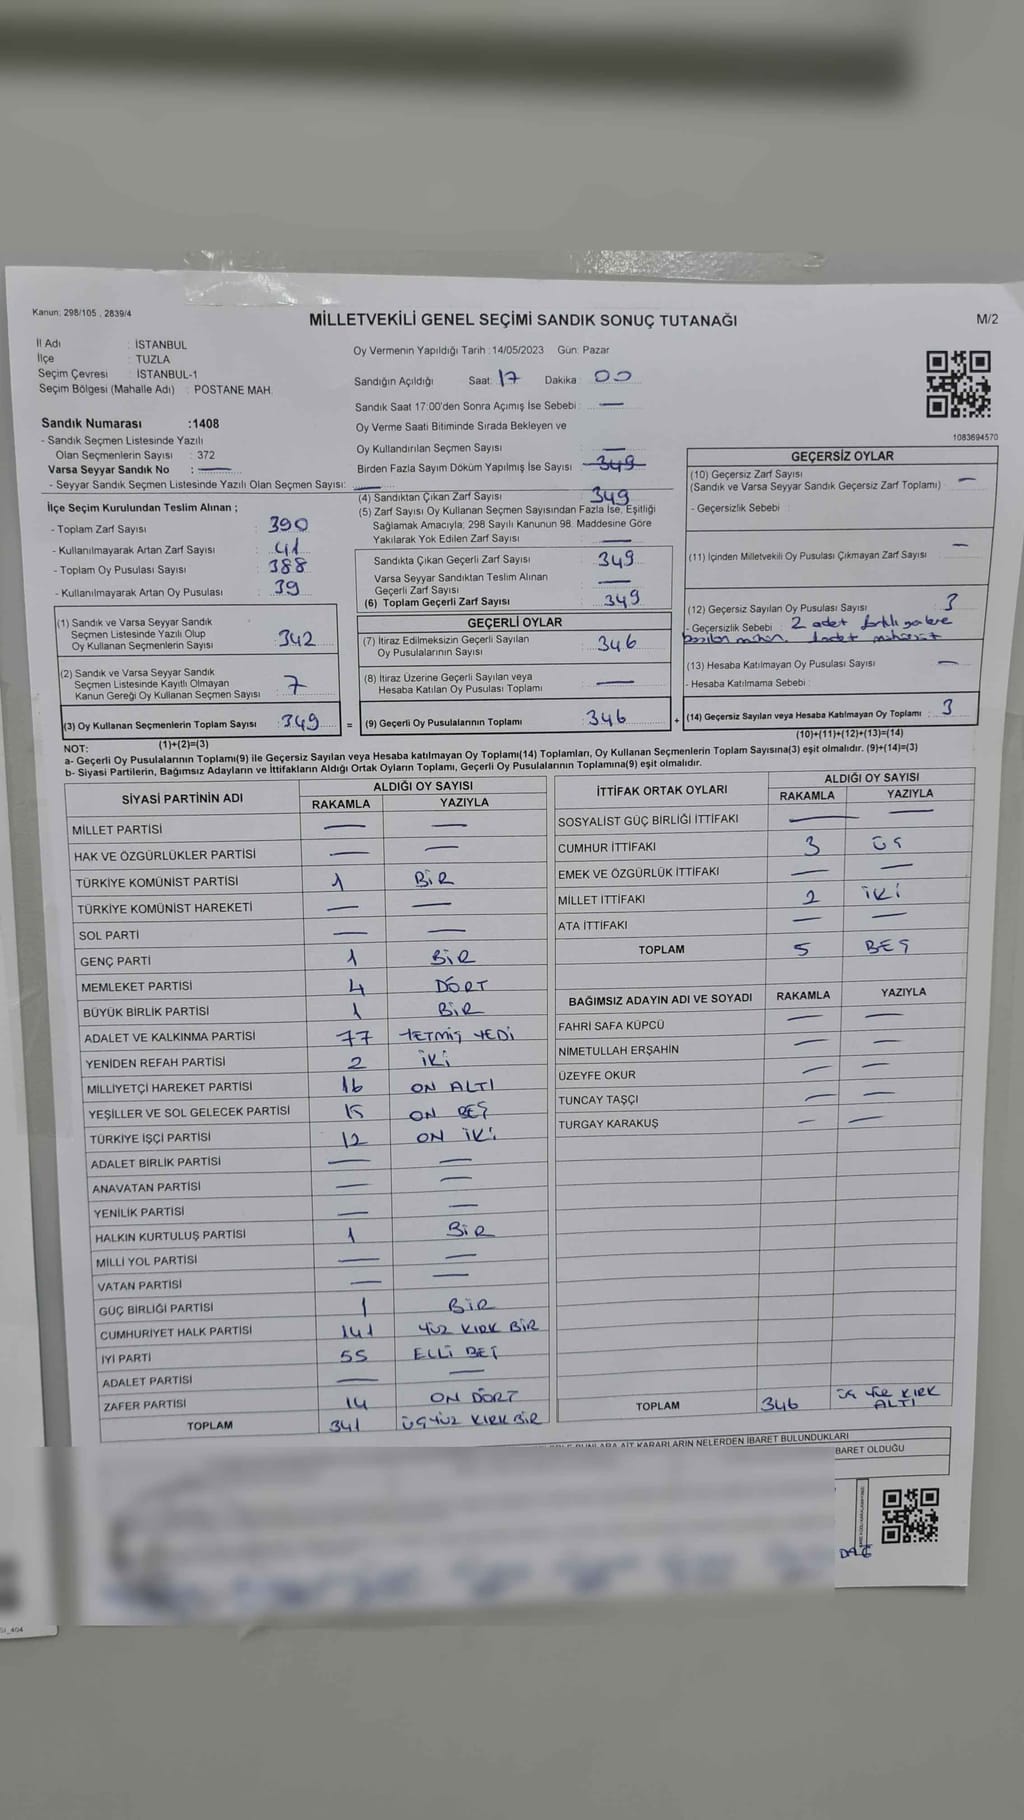 Kanun: 298/105 , 2839/4
MİLLETVEKİLİ GENEL SEÇİMİ SANDIK SONUÇ TUTANAĞI
M/2
İl Adı : İSTANBUL
İlçe : TUZLA
Seçim Çevresi : İSTANBUL-1
Seçim Bölgesi (Mahalle Adı) : POSTANE MAH.
Sandık Numarası :1408
- Sandık Seçmen Listesinde Yazılı
Olan Seçmenlerin Sayısı : 372
Varsa Seyyar Sandık No : —
- Seyyar Sandık Seçmen Listesinde Yazılı Olan Seçmen Sayısı: —
Oy Vermenin Yapıldığı Tarih :14/05/2023 Gün: Pazar
Sandığın Açıldığı Saat: 17 Dakika : 00
Sandık Saat 17:00'den Sonra Açımış İse Sebebi : —
Oy Verme Saati Bitiminde Sırada Bekleyen ve
Oy Kullandırılan Seçmen Sayısı —
Birden Fazla Sayım Döküm Yapılmış İse Sayısı 349
1083694570
İlçe Seçim Kurulundan Teslim Alınan ;
- Toplam Zarf Sayısı : 390
- Kullanılmayarak Artan Zarf Sayısı : 41
- Toplam Oy Pusulası Sayısı : 388
- Kullanılmayarak Artan Oy Pusulası : 39
(1) Sandık ve Varsa Seyyar Sandık
Seçmen Listesinde Yazılı Olup
Oy Kullanan Seçmenlerin Sayısı : 342
(2) Sandık ve Varsa Seyyar Sandık
Seçmen Listesinde Kayıtlı Olmayan
Kanun Gereği Oy Kullanan Seçmen Sayısı : 7
(3) Oy Kullanan Seçmenlerin Toplam Sayısı : 349 =
(1)+(2)=(3)
(4) Sandıktan Çıkan Zarf Sayısı 349
(5) Zarf Sayısı Oy Kullanan Seçmen Sayısından Fazla İse, Eşitliği
Sağlamak Amacıyla; 298 Sayılı Kanunun 98. Maddesine Göre
Yakılarak Yok Edilen Zarf Sayısı —
Sandıkta Çıkan Geçerli Zarf Sayısı 349
Varsa Seyyar Sandıktan Teslim Alınan
Geçerli Zarf Sayısı —
(6) Toplam Geçerli Zarf Sayısı 349
GEÇERLİ OYLAR
(7) İtiraz Edilmeksizin Geçerli Sayılan
Oy Pusulalarının Sayısı 346
(8) İtiraz Üzerine Geçerli Sayılan veya
Hesaba Katılan Oy Pusulası Toplamı —
(9) Geçerli Oy Pusulalarının Toplamı 346 +
GEÇERSİZ OYLAR
(10) Geçersiz Zarf Sayısı
(Sandık ve Varsa Seyyar Sandık Geçersiz Zarf Toplamı) —
- Geçersizlik Sebebi :
(11) İçinden Milletvekili Oy Pusulası Çıkmayan Zarf Sayısı —
(12) Geçersiz Sayılan Oy Pusulası Sayısı 3
- Geçersizlik Sebebi : 2 adet farklı yerlere
mühür. 1 adet
(13) Hesaba Katılmayan Oy Pusulası Sayısı —
- Hesaba Katılmama Sebebi :
(14) Geçersiz Sayılan veya Hesaba Katılmayan Oy Toplamı : 3
(10)+(11)+(12)+(13)=(14)
NOT:
a- Geçerli Oy Pusulalarının Toplamı(9) ile Geçersiz Sayılan veya Hesaba katılmayan Oy Toplamı(14) Toplamları, Oy Kullanan Seçmenlerin Toplam Sayısına(3) eşit olmalıdır. (9)+(14)=(3)
b- Siyasi Partilerin, Bağımsız Adayların ve İttifakların Aldığı Ortak Oyların Toplamı, Geçerli Oy Pusulalarının Toplamına(9) eşit olmalıdır.
SİYASİ PARTİNİN ADI
ALDIĞI OY SAYISI
RAKAMLA YAZIYLA
MİLLET PARTİSİ — —
HAK VE ÖZGÜRLÜKLER PARTİSİ — —
TÜRKİYE KOMÜNİST PARTİSİ 1 BİR
TÜRKİYE KOMÜNİST HAREKETİ — —
SOL PARTİ — —
GENÇ PARTİ 1 BİR
MEMLEKET PARTİSİ 4 DÖRT
BÜYÜK BİRLİK PARTİSİ 1 BİR
ADALET VE KALKINMA PARTİSİ 77 YETMİŞ YEDİ
YENİDEN REFAH PARTİSİ 2 İKİ
MİLLİYETÇİ HAREKET PARTİSİ 16 ON ALTI
YEŞİLLER VE SOL GELECEK PARTİSİ 15 ON BEŞ
TÜRKİYE İŞÇİ PARTİSİ 12 ON İKİ
ADALET BİRLİK PARTİSİ — —
ANAVATAN PARTİSİ — —
YENİLİK PARTİSİ — —
HALKIN KURTULUŞ PARTİSİ 1 BİR
MİLLİ YOL PARTİSİ — —
VATAN PARTİSİ — —
GÜÇ BİRLİĞİ PARTİSİ 1 BİR
CUMHURİYET HALK PARTİSİ 141 YÜZ KIRK BİR
İYİ PARTİ 55 ELLİ BEŞ
ADALET PARTİSİ — —
ZAFER PARTİSİ 14 ON DÖRT
TOPLAM 341 ÜÇ YÜZ KIRK BİR
İTTİFAK ORTAK OYLARI
ALDIĞI OY SAYISI
RAKAMLA YAZIYLA
SOSYALİST GÜÇ BİRLİĞİ İTTİFAKI — —
CUMHUR İTTİFAKI 3 ÜÇ
EMEK VE ÖZGÜRLÜK İTTİFAKI — —
MİLLET İTTİFAKI 2 İKİ
ATA İTTİFAKI — —
TOPLAM 5 BEŞ
BAĞIMSIZ ADAYIN ADI VE SOYADI RAKAMLA YAZIYLA
FAHRİ SAFA KÜPCÜ — —
NİMETULLAH ERŞAHİN — —
ÜZEYFE OKUR — —
TUNCAY TAŞÇI — —
TURGAY KARAKUŞ — —
TOPLAM 346 ÜÇ YÜZ KIRK
ALTI
KARARLARIN NELERDEN İBARET BULUNDUKLARI
BARET OLDUĞU